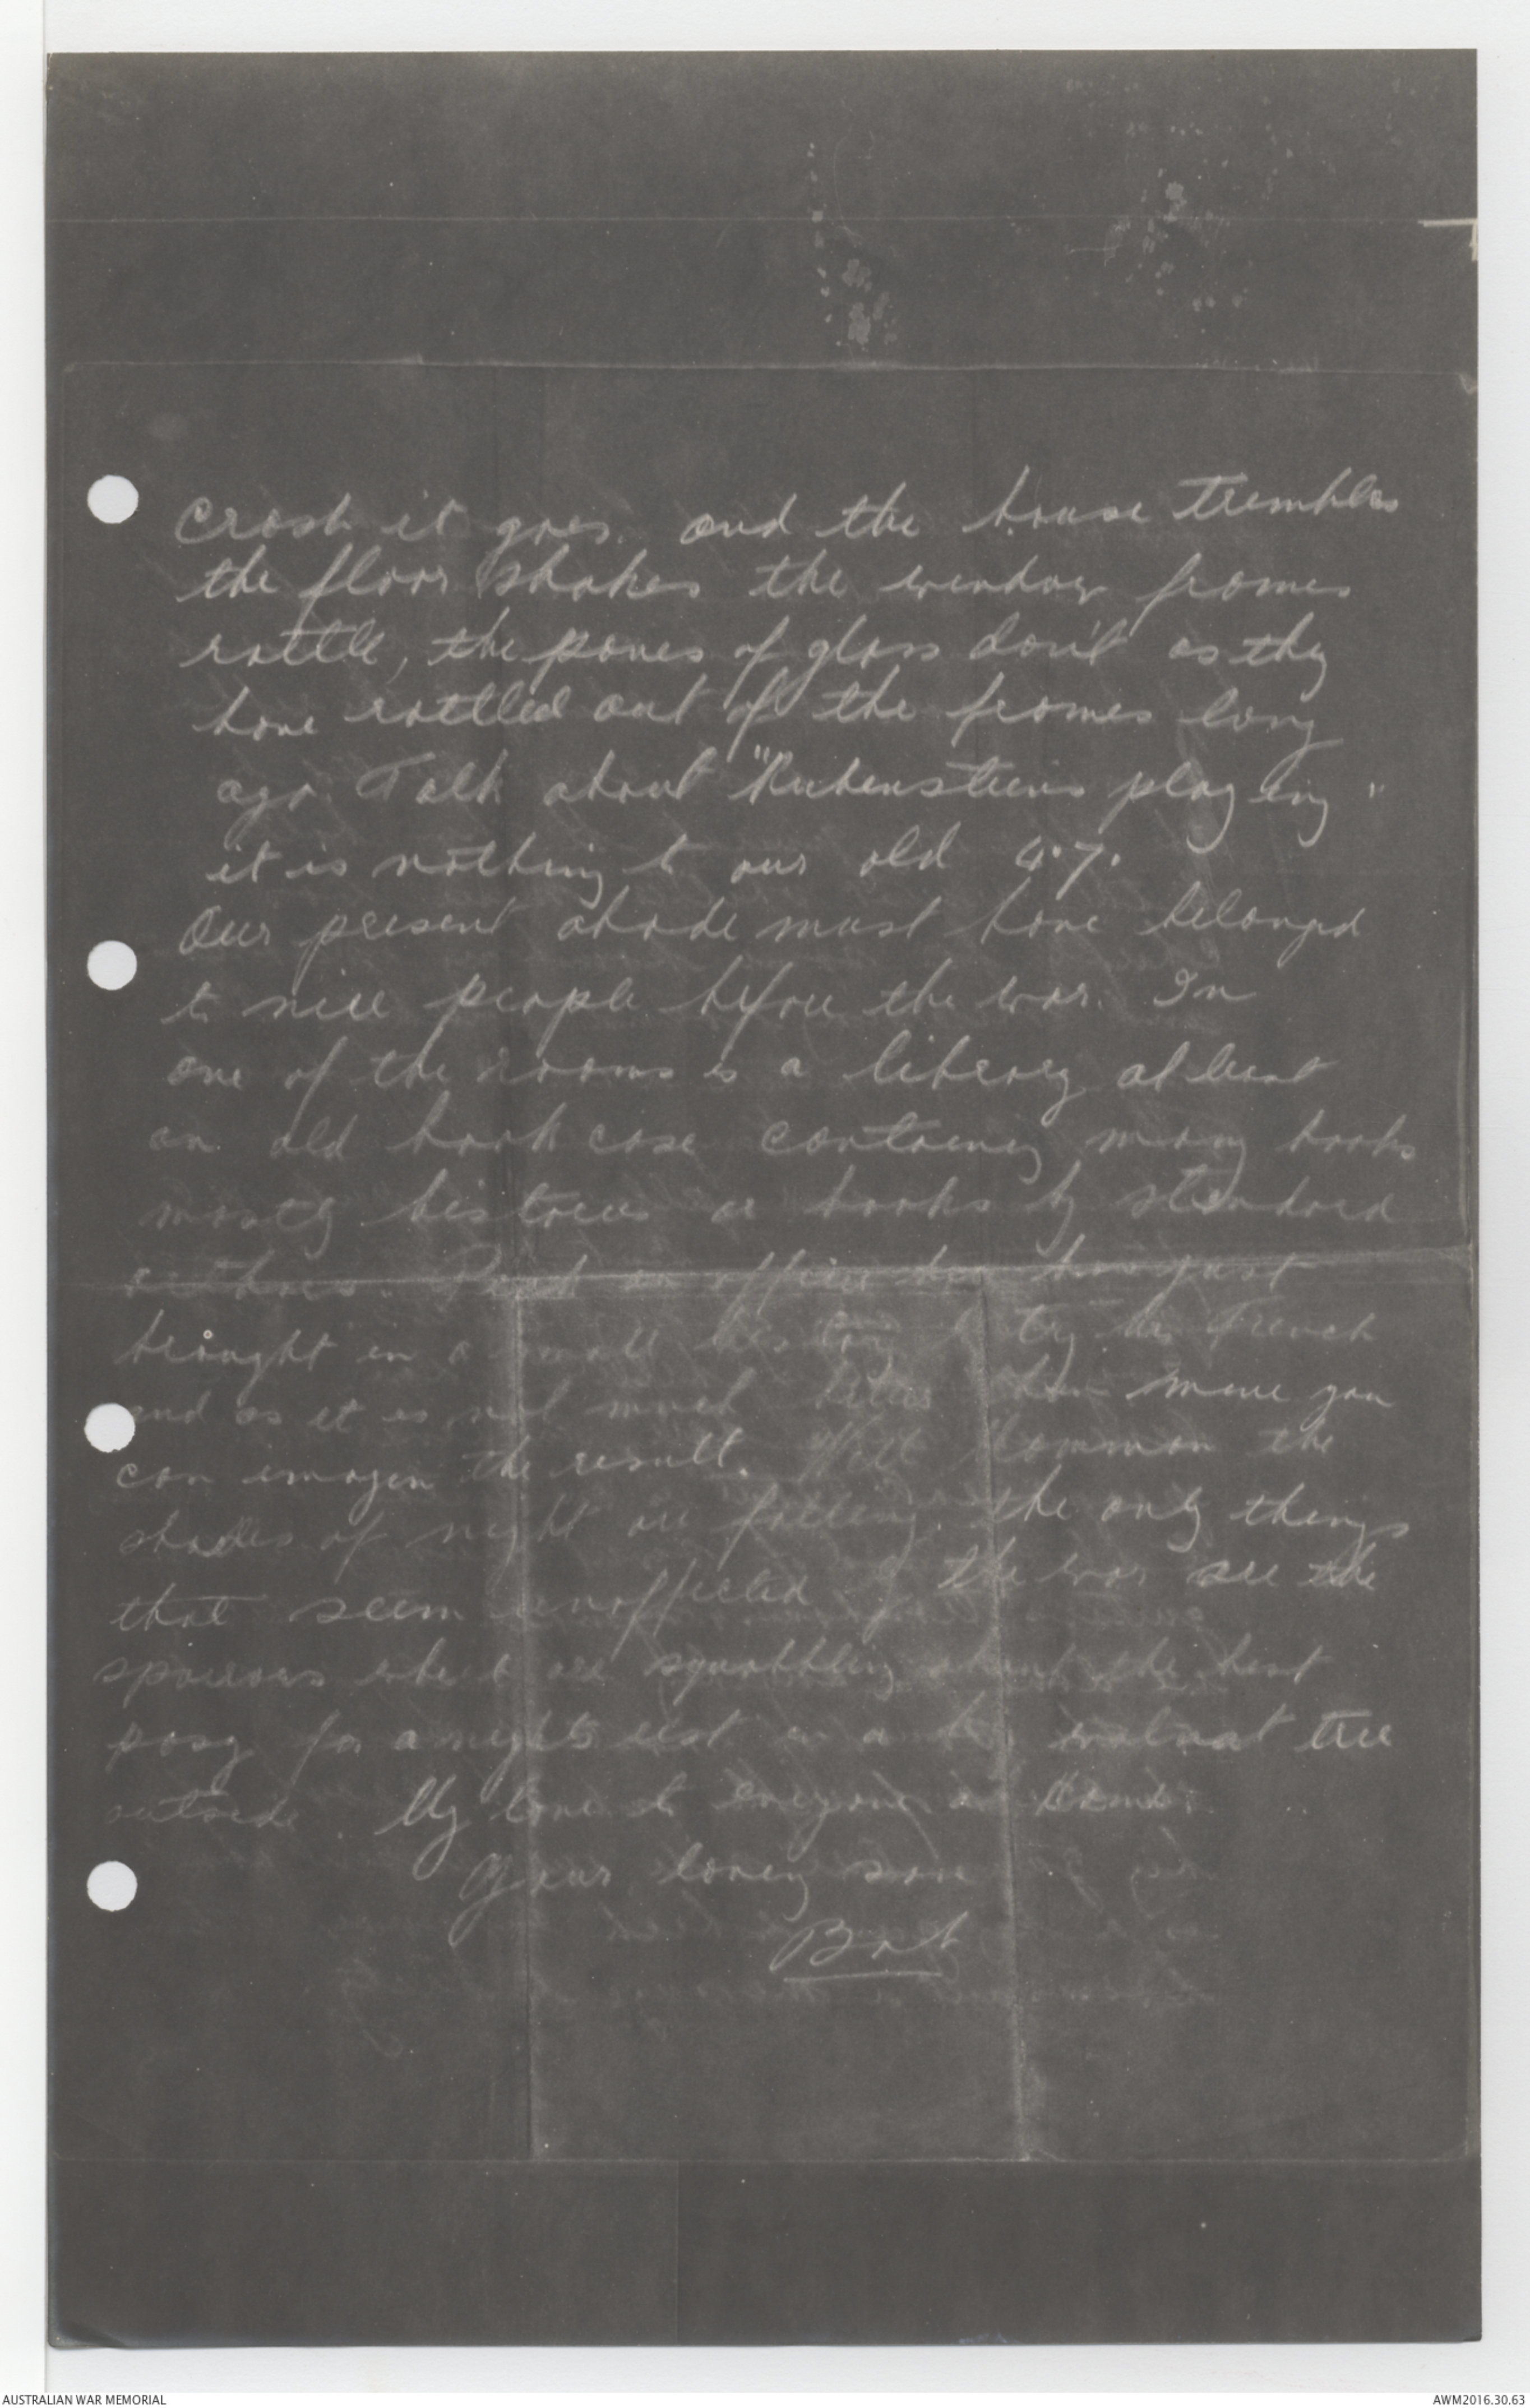 Crash it goes. and the house trembles
the floor shakes the window frames
rattle, the panes of glass don't as they
have rattled out of the frames long
ago Talk about "Rubensteins playing"
it is nothing to our old 4.7.
Our present abode must have belonged
to nice people before the war. In
one of the rooms is a library at least
an old book case containing many books
mostly histories or books by standard
authors. an officer has just
brought in a small history to try his French
and as it is not much better than mine you
can imagen the result. Well Mamman the
shades of night are falling. the only things
that seem unaffected by the war are the
sparrows which are squabbling about the best
posy for a nights rest in a walnut tree
outside. My love to everyone at home.
Your loving son
Bert
AUSTRALIAN WAR MEMORIAL
AWM2016.30.63